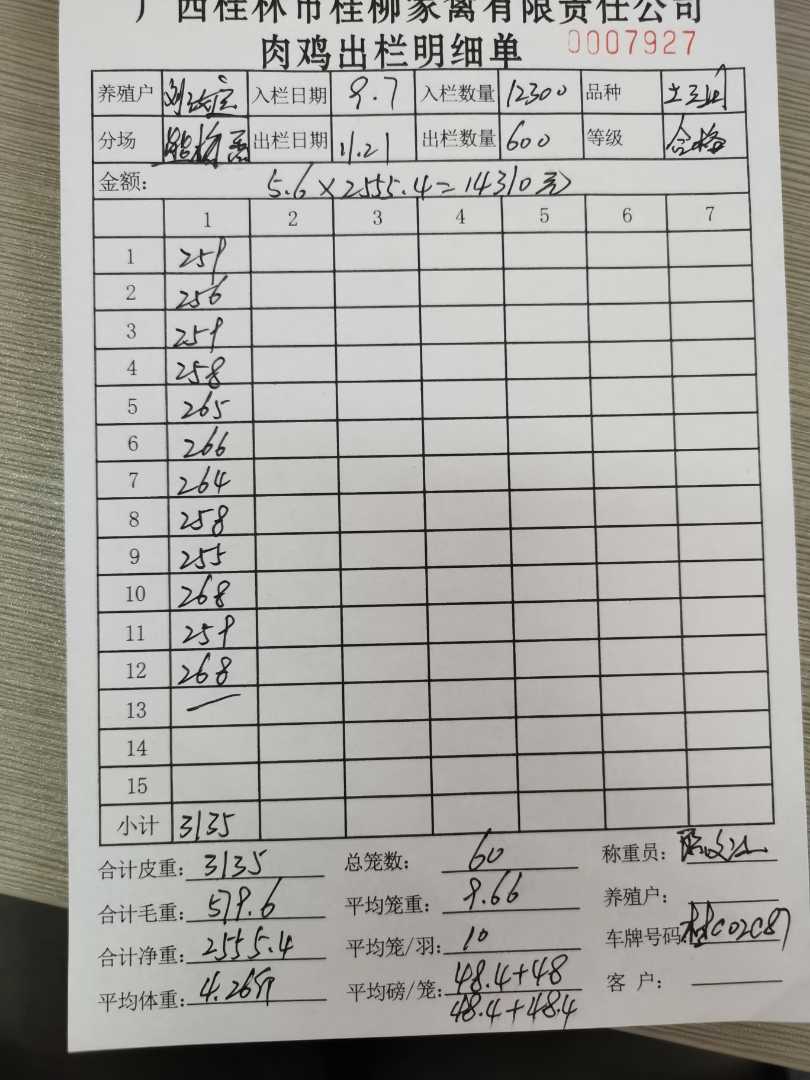 广西桂林市桂柳家禽有限责任公司
肉鸡出栏明细单 0007927
养殖户 入栏日期 9.7 入栏数量 12300 品种
分场 出栏日期 11.21 出栏数量 600 等级 合格
金额: 5.6×2555.4=14310元
1 2 3 4 5 6 7
1 259
2 256
3 259
4 258
5 265
6 266
7 264
8 258
9 255
10 268
11 259
12 268
13
14
15
小计 3135
合计皮重: 3135 总笼数: 60 称重员:
合计毛重: 579.6 平均笼重: 9.66 养殖户:
合计净重: 2555.4 平均笼/羽: 10 车牌号码: 桂C02C87
平均体重: 4.259 平均磅/笼: 48.4+48 客 户:
48.4+48.4